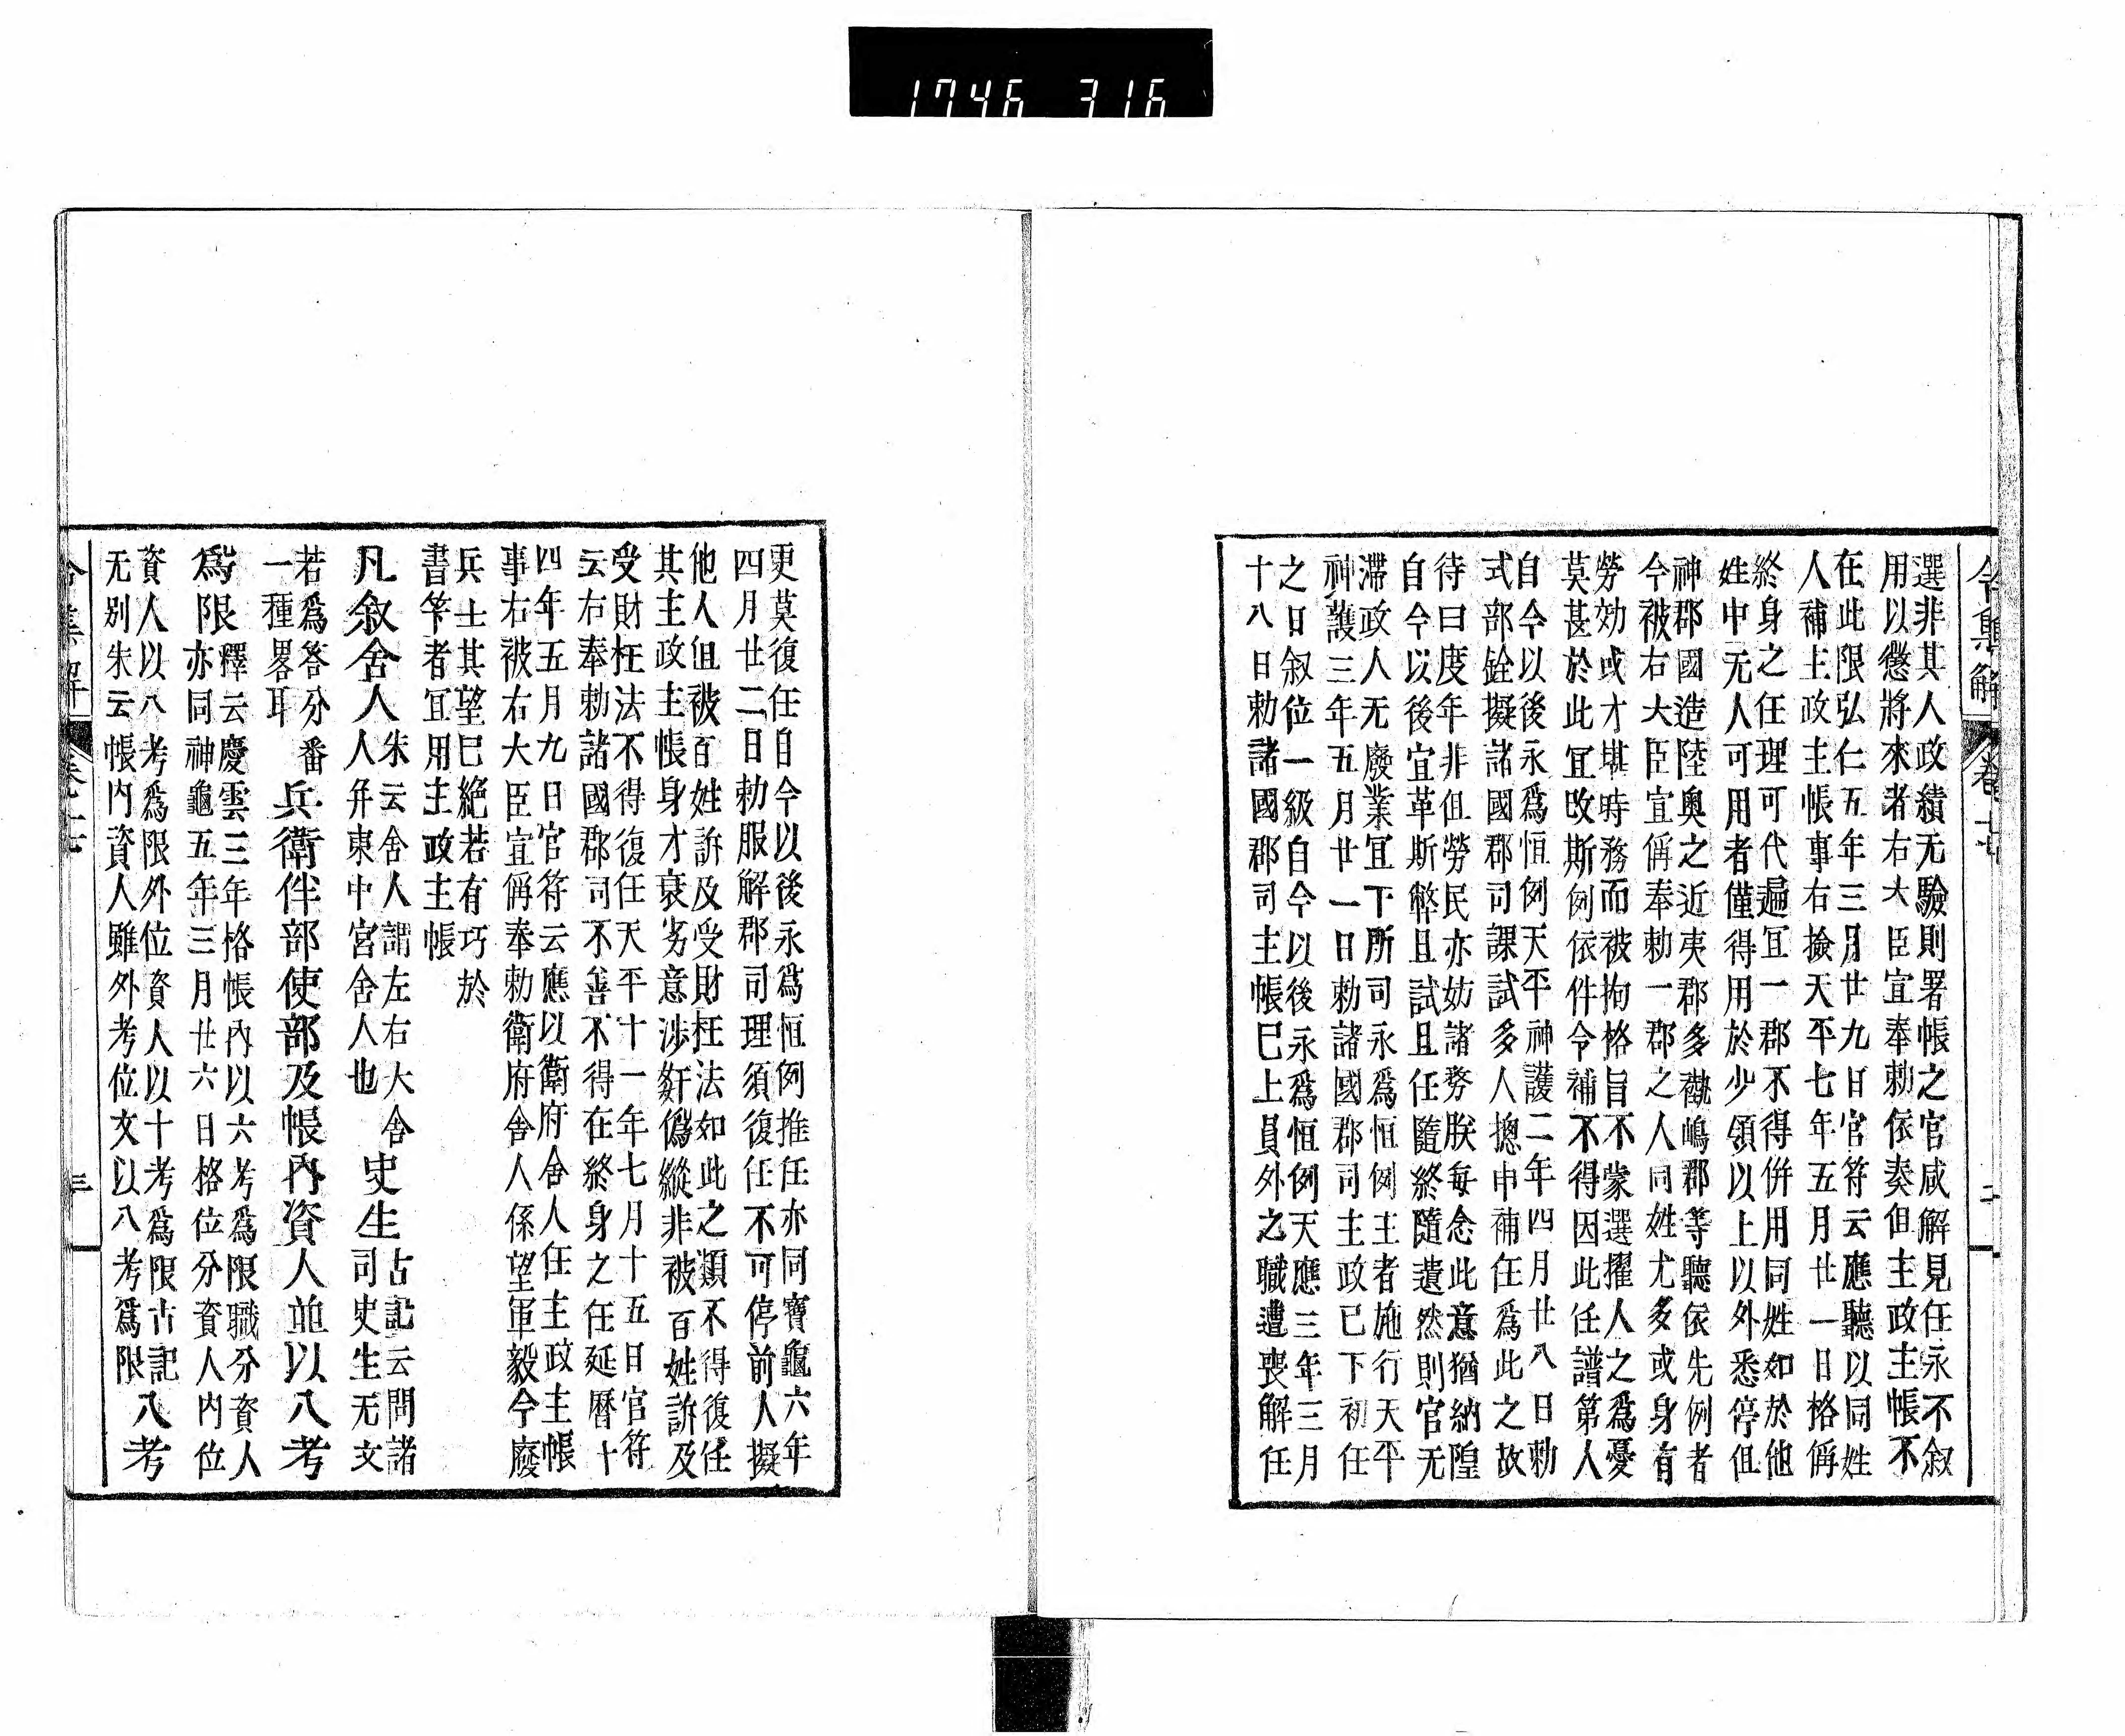 1746 316
令集解 卷十七 二
選非其人政績无驗則署帳之官咸解見任永不叙
用以懲將來者右大臣宣奉勅依奏但主政主帳不
在此限弘仁五年三月廿九日官符云應聽以同姓
人補主政主帳事右撿天平七年五月廿一日格偁
終身之任理可代遍冝一郡不得併用同姓如於他
姓中无人可用者僅得用於少領以上以外悉停但
神郡國造陸奥之近夷郡多褹嶋郡等聽依先例者
今被右大臣宣偁奉勅一郡之人同姓尤多或身有
勞効或才堪時務而被拘格旨不蒙選擢人之爲憂
莫甚於此冝改斯例依件令補不得因此任譜第人
自今以後永爲恒例天平神護二年四月廿八日勅
式部銓擬諸國郡司課試多人揔申補任爲此之故
待曰度年非但勞民亦妨諸務朕每念此意猶納隍
自今以後宜革斯弊且試且任隨終隨遣然則官无
滯政人无廢業冝下所司永爲恒例主者施行天平
神護三年五月廿一日勅諸國郡司主政已下初任
之日叙位一級自今以後永爲恒例天應三年三月
十八日勅諸國郡司主帳已上員外之職遭喪解任
更莫復任自今以後永爲恒例推任亦同寶龜六年
四月廿二日勅服解郡司理須復任不可停前人擬
他人但被百姓訴及受財枉法如此之類不得復任
其主政主帳身才衰劣意渉姧僞縱非被百姓訴及
受財枉法不得復任天平十一年七月十五日官符
云右奉勅諸國郡司不善不得在終身之任延曆十
四年五月九日官符云應以衛府舍人任主政主帳
事右被右大臣宣偁奉勅衛府舍人係望軍毅今廢
兵士其望已絶若有巧於
書竿者冝用主政主帳
凡叙舍人
朱云舍人謂左右大舍
人并東中宮舍人也
史生
古記云問諸
司史生无文
若爲答分番
一種畧耳
兵衛伴部使部及帳內資人並以八考
爲限
釋云慶雲三年格帳內以六考爲限職分資人
亦同神龜五年三月廿六日格位分資人内位
資人以八考爲限外位資人以十考爲限古記
无別朱云帳内資人雖外考位文以八考爲限
八考
令集解 卷十七 三